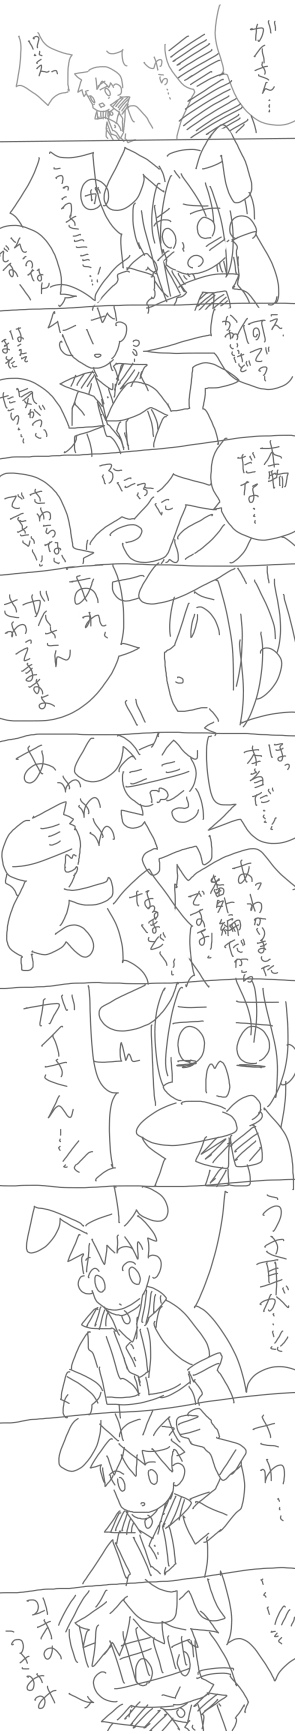 ガイさん…
ゆら…
!?えっ
うっうさミミ…!
そうなん
ですー
え、
何で?
かわいいけど
気がつい
たら…
本物
だな…
ふにふに
さわらない
で下さい!
あれ、
ガイさん
さわってますよ
ほっ
本当だ…!
あわわわ
あっわかりました
番外編だから
ですよ!
なるほどー!
ガイさん…!!
うさ耳が…!!
さわ…
…!!
21才の
うさみみ